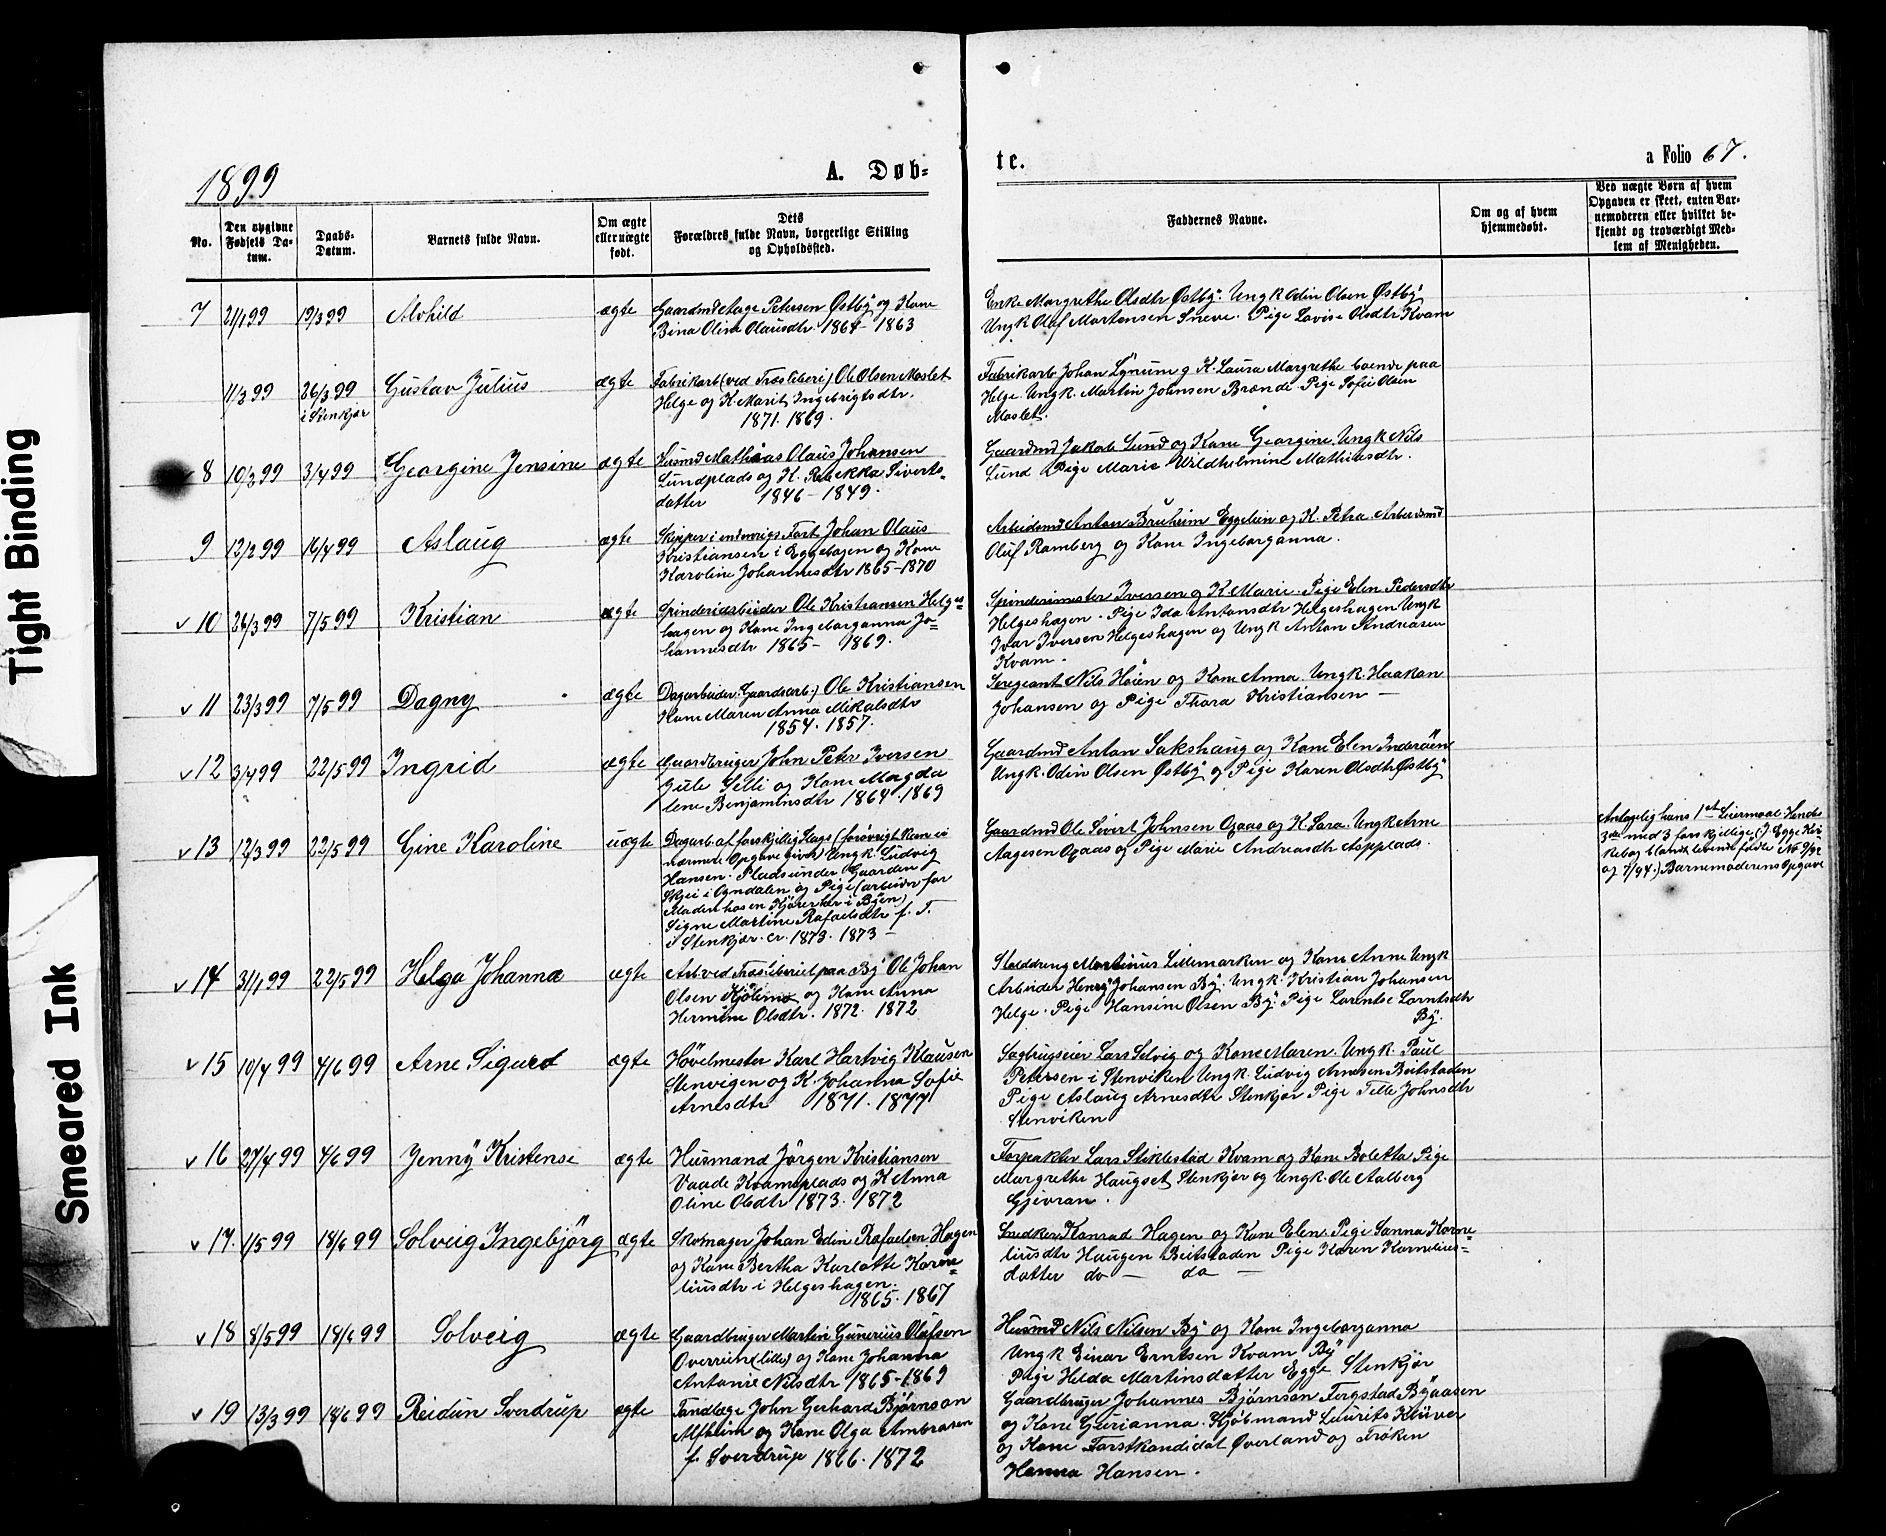 Tight Binding
Smeared Ink
1899
A. Døb-
te.
a Folio 67.
No.
Den opgivne Fødsels Da-
tum.
Daabs-
Datum.
Barnets fulde Navn.
Om ægte
eller uægte
født.
Dets
Forældres fulde Navn, borgerlige Stilling
og Opholdssted.
Faddernes Navne.
Om og af hvem
hjemmedøbt.
Ved uægte Børn af hvem
Opgaven er skeet, enten Bar-
nemoderen eller hvilket be-
kjendt og troværdigt Med-
lem af Menigheden.
7 21/1 99 19/3 99 Alvhild ægte
Gaardmd Aage Petersen Østby og Kone
Bina Oline Olausdtr. 1864 - 1863
Enke Margrethe Olsdtr Østby. Ungk Odin Olsen Østby
Ungk Olaf Martensen Sneve. Pige Lovise Olsdtr Kvam
11/2 99 26/3 99 Gustav Julius ægte
i Stenkjær
Fabrikarb (ved Træsliberi) Ole Olsen Moslet
Helge og K. Marit Ingebrigtsdtr.
1871. 1869.
Fabrikarb Johan Lynum og K. Laura Margrethe boende paa
Helge. Ungk. Martin Johnsen Brænde Pige Sofie Olsen
Moslet.
8 10/2 99 3/4 99 Georgine Jensine ægte
Husmd Mathias Olaus Johansen
Lundplads og K. Rebekka Siverts-
datter 1846 - 1849.
Gaardmd Jakob Lund og Kone Georgine. Ungk Nils
Lund Pige Marie Vildhelmine Mathiasdtr.
9 12/2 99 16/4 99 Aslaug ægte
Skipper i indenrigs Fart Johan Olaus
Kristiansen i Eggebogen og Kone
Karoline Johannesdtr 1865-1870
Arbeidsmd Anton Bruheim Eggelien og K. Petra. Arbeidsmd
Oluf Ramberg og Kone Ingeborganna.
v 10 26/3 99 7/5 99 Kristian ægte
Spinderiarbeider Ole Kristiansen Helges-
hagen og Kone Ingeborganna Jo-
hannesdtr 1865 - 1869.
Spinderimester Iversen og K. Marie. Pige Elen Pedersdtr
Helgeshagen. Pige Ida Antonsdtr Helgeshagen Ungk
Ivar Iversen Helgeshagen og Ungk Anton Andreasen
Kvam.
v 11 23/3 99 7/5 99 Dagny ægte
Dagarbeider (Gaardsarb.) Ole Kristiansen
Kone Maren Anna Mikalsdtr
1854. 1857.
Seregeant Nils Høien og Kone Anna. Ungk. Haakon
Johansen og Pige Thora Kristiansen
v 12 3/4 99 22/5 99 Ingrid ægte
Gaardbruger John Peter Iversen
Gule Selli og Kone Magda
lene Benjaminsdtr 1864. 1869
Gaardmd Anton Sakshaug og Kone Elen Inderøen
Ungk. Odin Olsen Østby og Pige Karen Olsdtr Østby
v 13 12/3 99 22/5 99 Gine Karoline uægte
Dagarb. af forskjellig Slags (forøvrigt kan ei
nærmere Opgave gives) Ungk. Ludvig
Hansen. Plads under Gaarden
Skei i Ogndalen og Pige (arbeidr for
Signe Martine Rafaelsdtr f. T.
i Stenkjær. cr. 1873. 1873 -
Gaardmd Ole Sivert Johnsen Opaas og K. Sara. Ungk Arne
Aagesen Opaas og Pige Marie Andreasdtr Aspplads.
Antagelig hans 1ste Leiermaal Hendes
3die med 3 forskjellige (I Egge Kir
kebog blandt levende fødte No 9/92
og 7/94.) Barnemoderens Opgave
v 14 31/1 99 22/5 99 Helga Johanna ægte
Arb ved Træsliberiet paa By Ole Johan
Olsen Kjølmo og Kone Anna
Hermine Olsdtr. 1872. 1872
Stalddreng Martinus Lillemarken og Kone Anne Ungk
Arbeider Henry Johansen By. Ungk. Kristian Johansen
Helge. Pige Hansine Olsen By. Pige Lorentse Lorntsdtr
By.
v 15 10/4 99 4/6 99 Arne Sigurd ægte
Høvelmester Karl Hartvig Klausen
Stenvigen og K. Johanna Sofie
Arnesdtr 1871. 1877
Sagbrugseier Lars Selvig og Kone Maren. Ungk. Paul
Petersen i Stenviken Ungk. Ludvig Arnesen Beitstaden
Pige Aslaug Arnesdtr Stenkjær Pige Tille Johnsdtr
Stenviken
v 16 27/4 99 4/6 99 Jenny Kristense ægte
Husmand Jørgen Kristiansen
Vaade Kvamsplads og K Anna
Oline Olsdtr 1873. 1872
Forpakter Lars Stiklestad Kvam og Kone Boletta Pige
Margrethe Haugset Stenkjær og Ungk. Ole Aalberg
Gjevran.
v 17. 1/5 99 18/6 99 Solveig Ingebjörg ægte
Skomager Johan Edin Rafaelsen Hagen
og Kone Bertha Karlotte Korne-
liusdtr i Helgeshagen.
1865. 1867
Snedker Konrad Hagen og Kone Elen. Pige Sanna Korne-
liusdtr Haugen Beitstaden Pige Karen Kornelius-
datter do - do -
v 18 8/5 99 18/6 99 Solveig ægte
Gaardbruger Martin Gunerius Olufsen
Overrein (lille) og Kone Johanna
Antonie Nilsdtr 1865-1869
Husmd Nils Nilsen By og Kone Ingeborganna
Ungk Einar Erntsen Kvam By
Pige Helda Martinsdatter Egge Stenkjær
v 19 13/3 99 18/6 99 Reidun Sverdrup ægte
Tandlæge John Gerhard Bjørnson
Alfheim og Kone Olga Ambrosen
f. Sverdrup 1866. 1872
Gaardbruger Johannes Bjørnson Fergstad Byaasen
og Kone Gurianna. Kjøbmand Laurits Klüver
og Kone Forstkandidat Øverland og Frøken
Hanna Hansen.